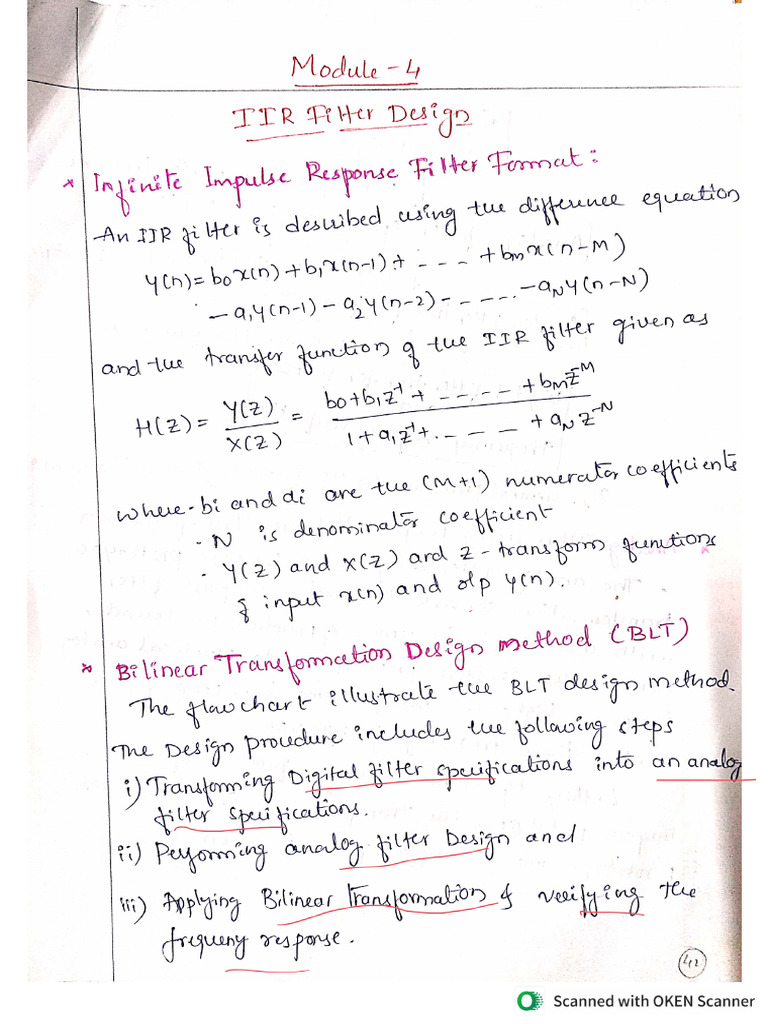 Module - 4
IIR Filter Design
* Infinite Impulse Response Filter Format:
An IIR filter is desuibed using the difference equation
y(n) = b0x(n) + b1x(n-1) + - - - - + bmx(n-M)
- a1y(n-1) - a2y(n-2) - - - - - - aNy(n-N)
and the transfer function of the IIR filter given as
H(Z) = Y(Z) / X(Z) = b0 + b1z^-1 + - - - - - + bMz^-M / 1 + a1z^-1 + - - - - + aNz^-N
where - bi and ai are the (M+1) numerator coefficients
· N is denominator coefficient
· Y(Z) and X(Z) ard z - transform functions
of input x(n) and o/p y(n).
* Bilinear Transformation Design method (BLT)
The flowchart illustrate the BLT design method.
The Design proudure includes the following steps
i) Transforming Digital filter speufications into an analog
filter speufications.
ii) Performing analog filter Design and
iii) Applying Bilinear Transformation & verifying the
frequeny response.
42
Scanned with OKEN Scanner